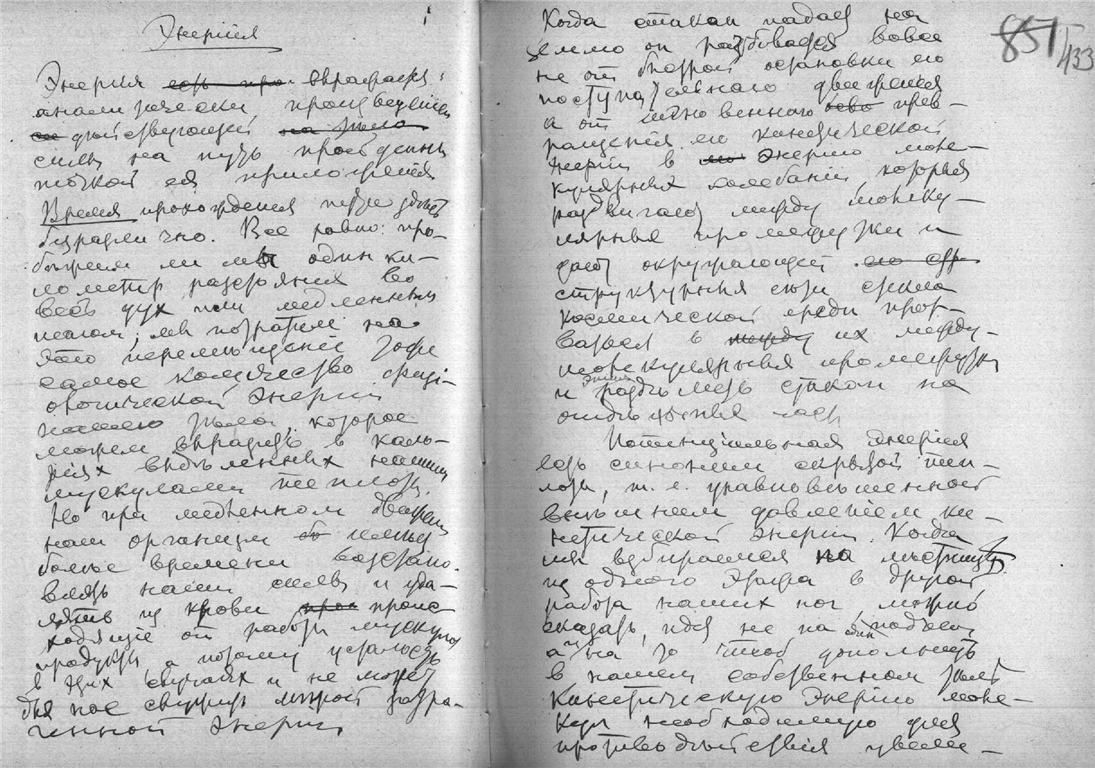 Энергия
Энергия есть про выражается
аналитически произведением
действующей на тело
силы на путь пройденный
точкой ея приложения
Время прохождения пути здесь
безразлично. Все равно: про-
бежим ли мы один ки-
лометр разстояния во
весь дух или медленным
шагом, мы потратим на
это перемещение тоже
самое количество физи-
ологической энергии
нашего тела, которое
можем выразить в кало-
риях выделенных нашими
мускулами теплоты.
Но при медленном движении
наш организм имеет
более времени возстано-
влять наши силы и уда-
лять из крови проис-
ходящие от работы мускулов
продукты, а потому усталость
в этих случаях и не может
для нас служить мерой затра-
ченной энергии
1
851/433
Когда стакан падает на
землю он разбивается вовсе
не от быстрой остановки его
поступательнаго движения
а от мгновеннаго прев-
ращения его кинетической
энергии в энергию моле-
кулярных колебаний, которыя
раздвигают между молеку-
лярные промежутки и
дают окружающей
структурныя связи
космической среды прор-
ваться в между их между-
молекулярныя промежутки
и разъ стакан на
отдельныя части
Потенциальная энергия
есть синоним скрытой теп-
лоты, т.е. уравновешенной
внешним давлением ки-
нетической энергии. Когда
мы взбираемся на лестницу
из одного этажа в другой
работа наших ног, можно
сказать, идет не на подъем
а на то чтоб дополнить
в нашем собственном теле
кинетическую энергию моле-
кул необходимую для
противодействия увели-